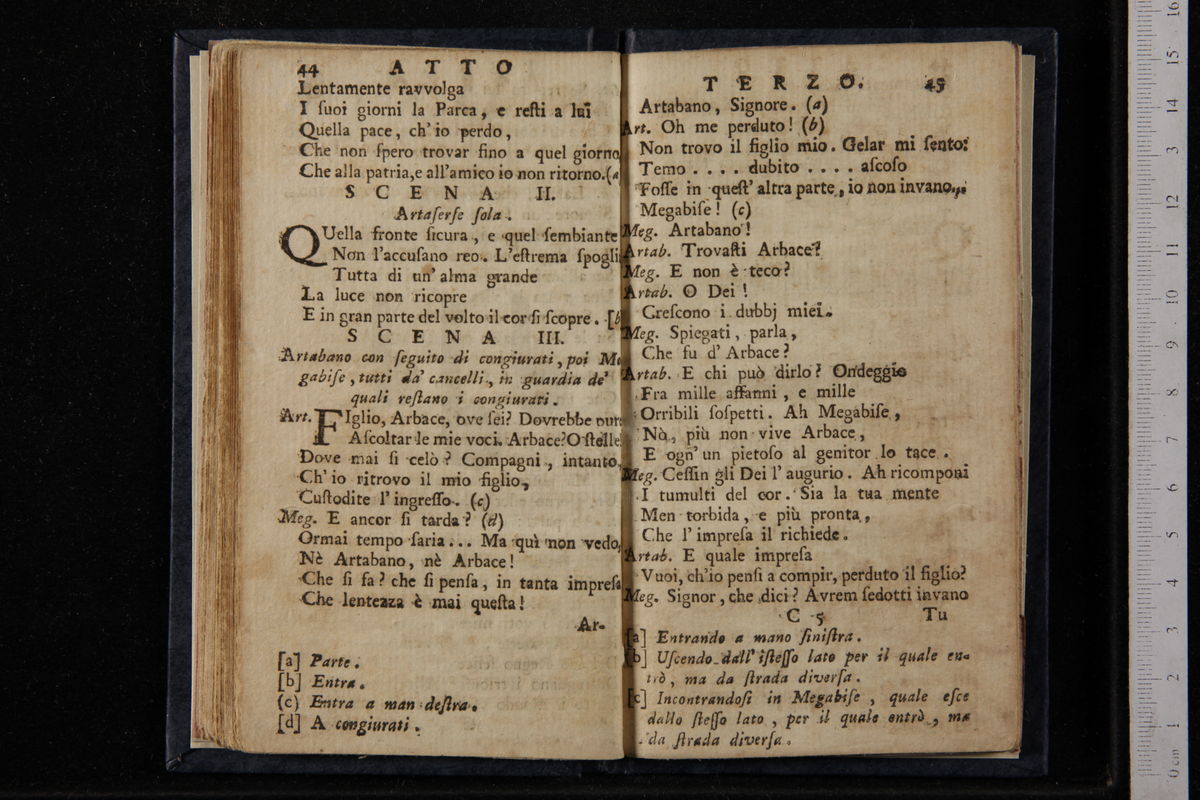 44 ATTO
Lentamente ravvolga
I ſuoi giorni la Parca, e reſti a lui
Quella pace, ch'io perdo,
Che non ſpero trovar fino a quel giorno
Che alla patria, e all'amico io non ritorno. (a
SCENA II.
Artaſerſe ſola.
QUella fronte ſicura, e quel ſembiante
Non l'accuſano reo. L'eſtrema ſpogli
Tutta di un' alma grande
La luce non ricopre
E in gran parte del volto il cor ſi ſcopre. [b
SCENA III.
Artabano con ſeguito di congiurati, poi Me
gabiſe, tutti da' cancelli, in guardia de'
quali reſtano i congiurati.
Art. FIglio, Arbace, ove ſei? Dovrebbe pur
Aſcoltar le mie voci. Arbace? O ſtelle
Dove mai ſi celò? Compagni, intanto,
Ch'io ritrovo il mio figlio,
Cuſtodite l'ingreſſo. (c)
Meg. E ancor ſi tarda? (d)
Ormai tempo ſaria... Ma quì non vedo,
Nè Artabano, nè Arbace!
Che ſi fa? che ſi penſa, in tanta impreſa
Che lentezza è mai queſta!
Ar-
[a] Parte.
[b] Entra.
(c) Entra a man deſtra.
[d] A congiurati.
TERZO. 45
Artabano, Signore. (a)
Art. Oh me perduto! (b)
Non trovo il figlio mio. Gelar mi ſento:
Temo .... dubito .... aſcoſo
Foſſe in queſt' altra parte, io non invano..
Megabiſe! (c)
Meg. Artabano!
Artab. Trovaſti Arbace?
Meg. E non è teco?
Artab. O Dei!
Creſcono i dubbj miei.
Meg. Spiegati, parla,
Che fu d'Arbace?
Artab. E chi può dirlo? Ondeggio
Fra mille affanni, e mille
Orribili ſoſpetti. Ah Megabiſe,
Nò, più non vive Arbace,
E ogn'un pietoſo al genitor lo tace.
Meg. Ceſſin gli Dei l'augurio. Ah ricomponi
I tumulti del cor. Sia la tua mente
Men torbida, e più pronta,
Che l'impreſa il richiede.
Artab. E quale impreſa
Vuoi, ch'io penſi a compir, perduto il figlio?
Meg. Signor, che dici? Avrem ſedotti invano
C 5 Tu
[a] Entrando a mano ſiniſtra.
[b] Uſcendo dall' iſteſſo lato per il quale en-
trò, ma da ſtrada diverſa.
[c] Incontrandoſi in Megabiſe, quale eſce
dallo ſteſſo lato, per il quale entrò, ma
da ſtrada diverſa.
0 cm 1 2 3 4 5 6 7 8 9 10 11 12 13 14 15 16